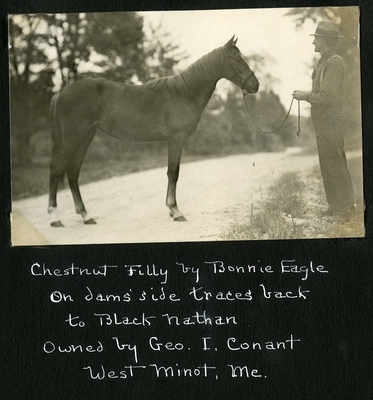 Chestnut Filly by Bonnie Eagle
On dams' side traces back
to Black Nathan
Owned by Geo. I. Conant
West Minot, Me.